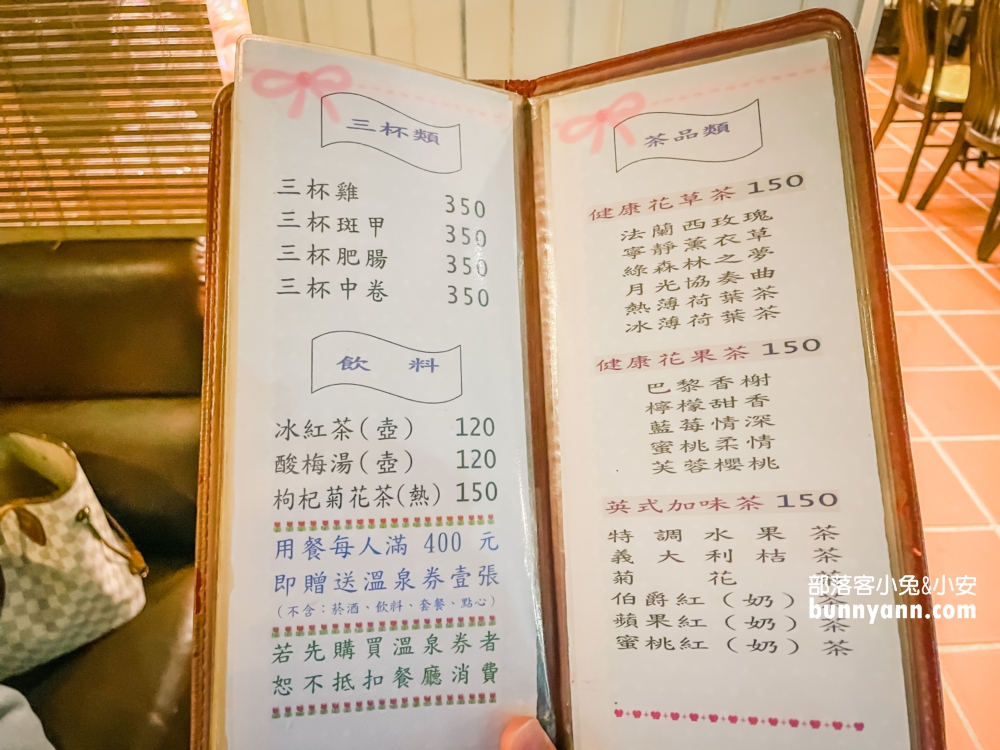 三杯類
三杯雞 350
三杯斑甲 350
三杯肥腸 350
三杯中卷 350
飲料
冰紅茶(壺) 120
酸梅湯(壺) 120
枸杞菊花茶(熱) 150
用餐每人滿 400 元
即贈送溫泉券壹張
(不含：菸酒、飲料、套餐、點心)
若先購買溫泉券者
恕不抵扣餐廳消費
茶品類
健康花草茶 150
法蘭西玫瑰
寧靜薰衣草
綠森林之夢
月光協奏曲
熱薄荷葉茶
冰薄荷葉茶
健康花果茶 150
巴黎香榭
檸檬甜香
藍莓情深
蜜桃柔情
芙蓉櫻桃
英式加味茶 150
特調水果茶
義大利桔茶
菊花茶
伯爵紅(奶)茶
蘋果紅(奶)茶
蜜桃紅(奶)茶
部落客小兔&小安
bunnyann.com